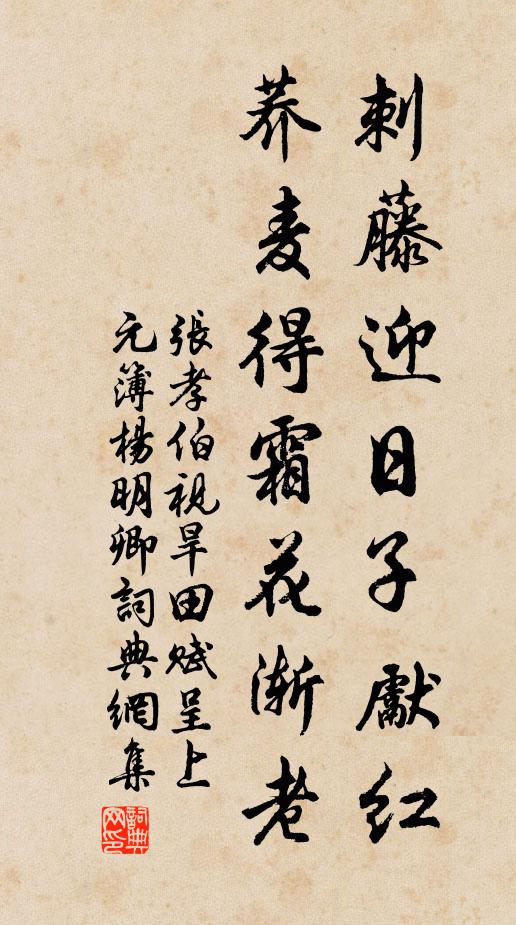 刺藤迎日子獻紅
荞麦得霜花渐老
張孝伯視旱田賦呈上
元簿楊明卿詞典網集
詞典网印